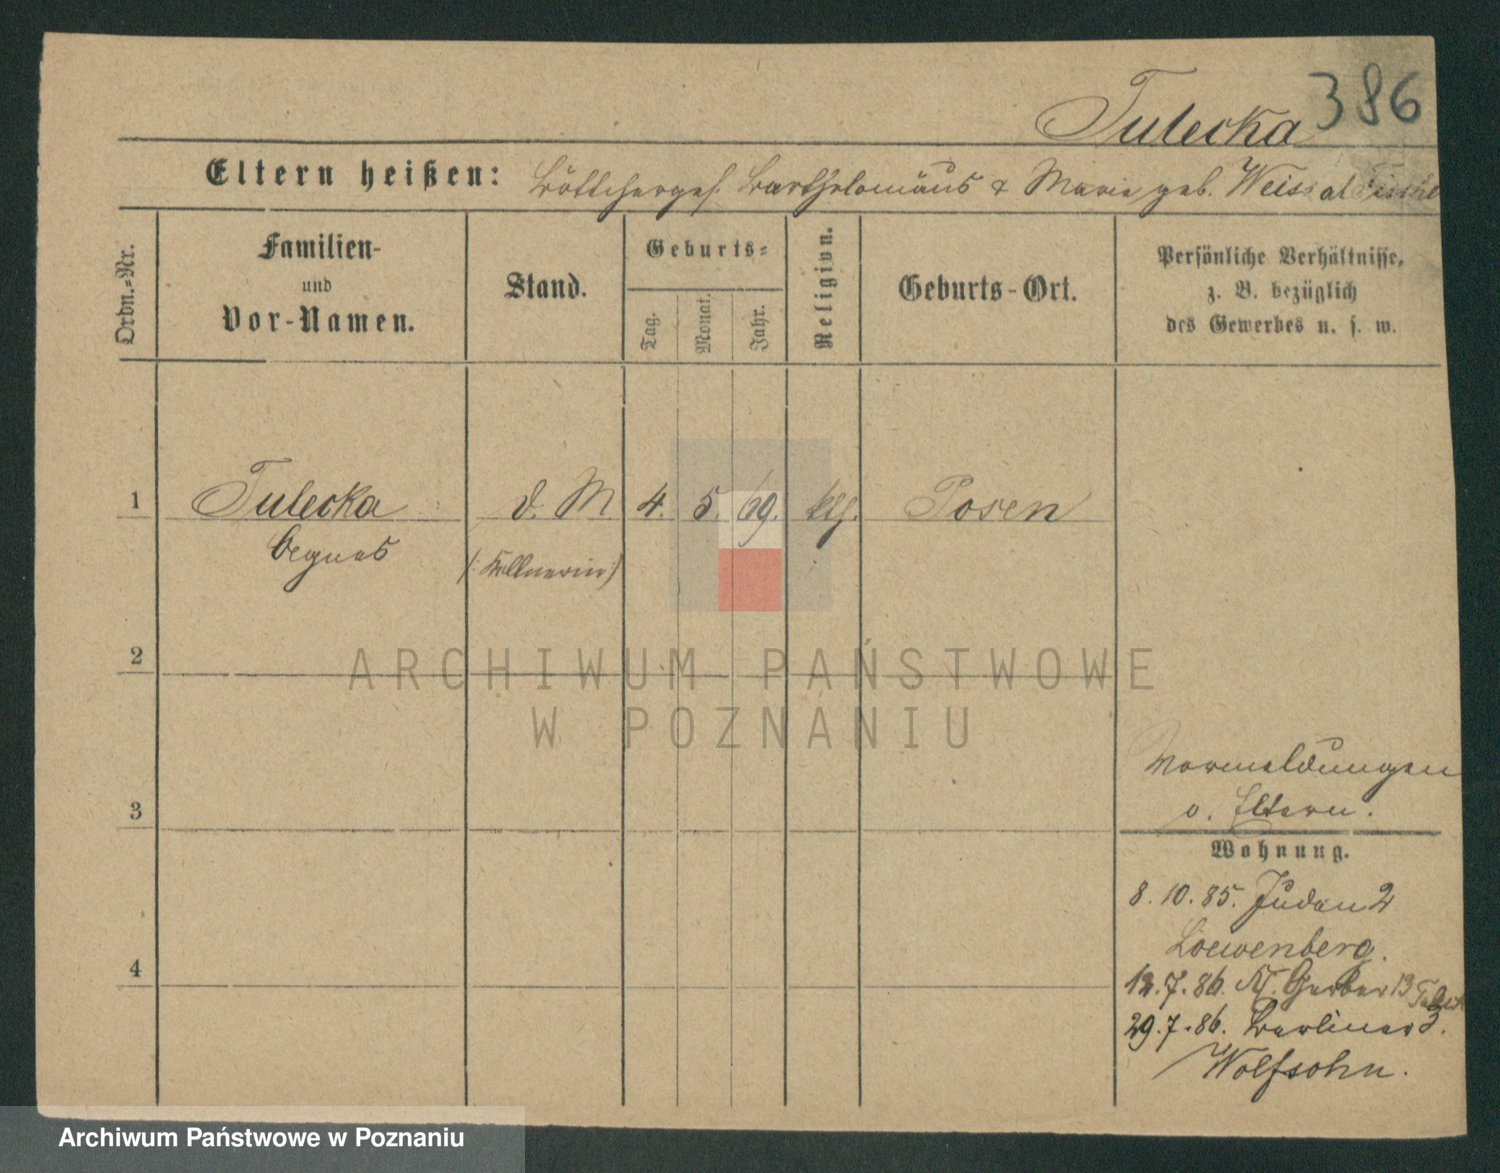 386
Tulecka
Eltern heißen: Böttcherges. Bartholomäus & Marie geb. Weiss
Ordn.-Nr.
Familien-
und
Vor-Namen.
Stand.
Geburts-
Tag.
Monat.
Jahr.
Religion.
Geburts-Ort.
Persönliche Verhältnisse,
z. B. bezüglich
des Gewerbes u. s. w.
1 Tulecka d. M 4. 5. 69. klh. Posen
Agnes (: Kellnerin :)
2
ARCHIWUM PAŃSTWOWE
W POZNANIU
Vormeldungen
3 v. Eltern.
Wohnung.
8. 10. 85. Juden 2
Loewenberg.
4
12. 7. 86. Kl. Gerber 13
29. 7. 86. Berliner 3.
Wolfsohn.
Archiwum Państwowe w Poznaniu